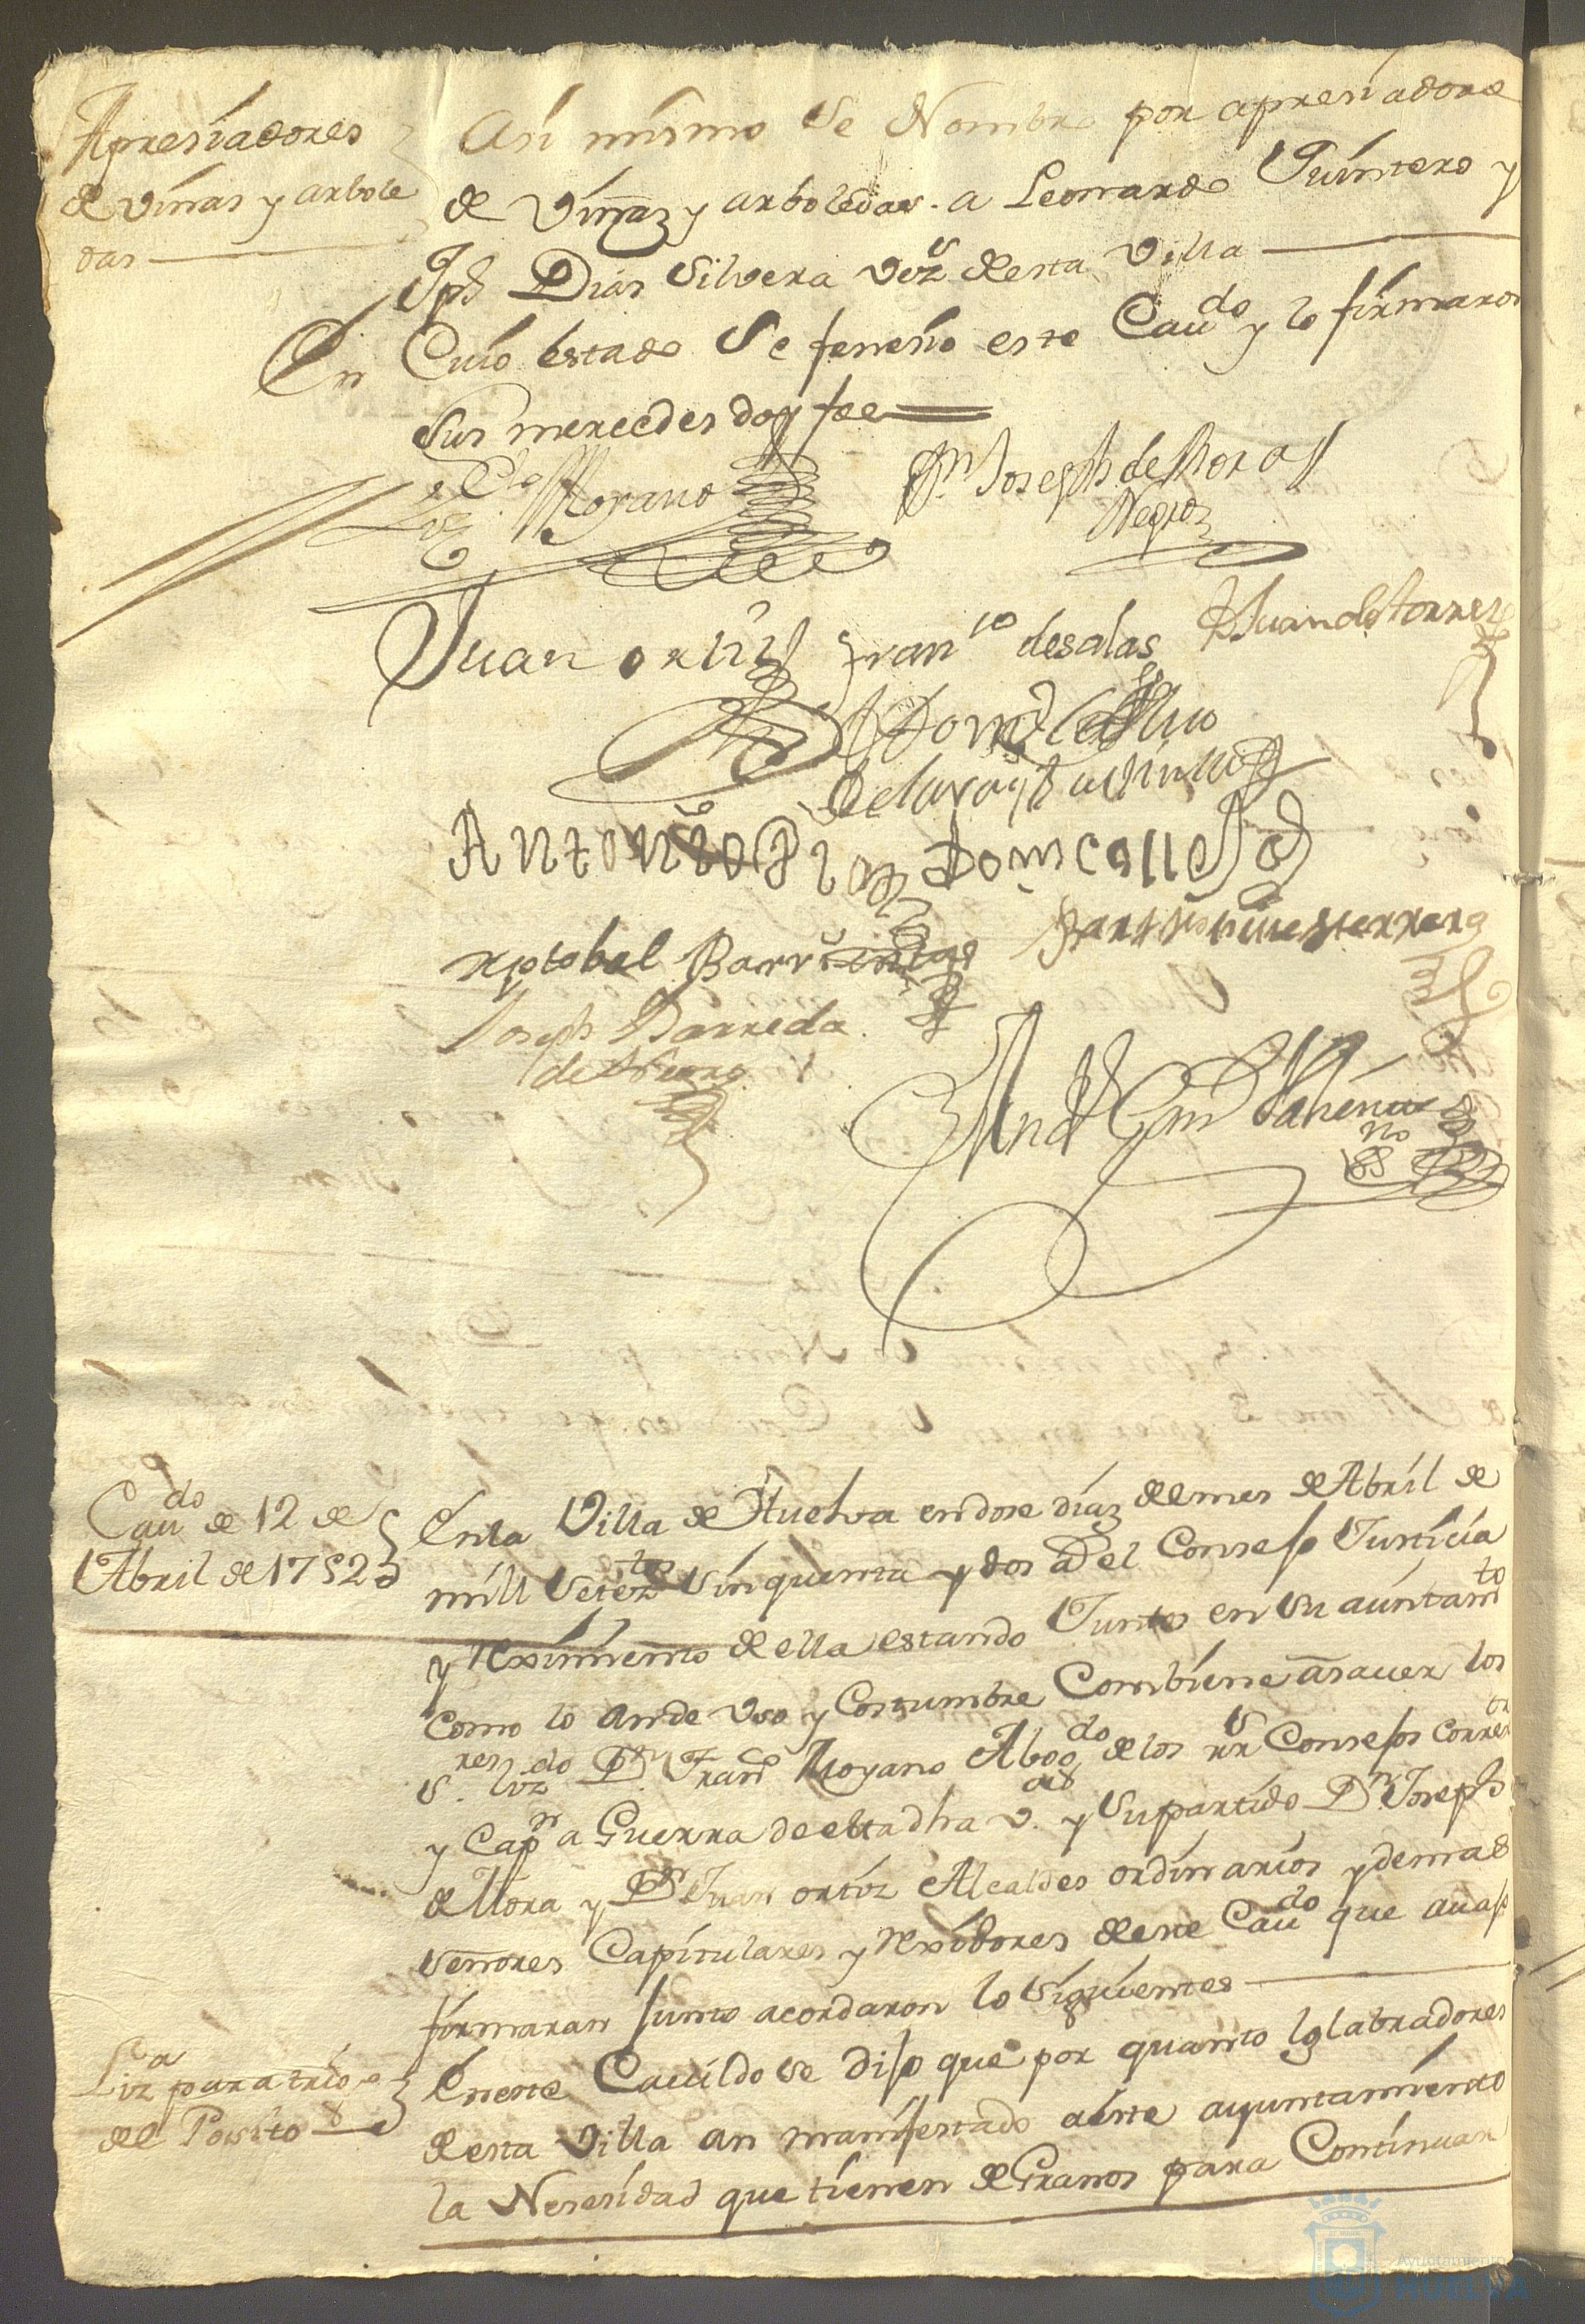 Apresiadores
de viñas y arbole
das
Asi mismo se Nombro por apresiadore
de Viñaz y arboledas. a Leonardo Quintero y
Jph Dias Silvera vezs desta Villa
En Cuio estado Se feneсio este Caudo y lo firmaron
Sus mercedes doy fee
Lizdo Moyano
Dn Joseph de Mora
Negro
Juan ortis
Franco de salas
Juan de torres
Antonio Dias
Dom Calle
xptobal Barrientos
Joseph Barreda
Caudo de 12 de
Abril de 1752
En la Villa de Huelva en dose diaz del mes de Abril de
mill setezos sinquenta y dos a Del Consejo Justicia
y Reximiento de ella estando Juntos en su aiuntamto
como lo an de Uso y Costumbre Combiene asaver los
Sres lizdo Dn Franco Moyano Abogdo de los rrs Consejos Correxor
y Capn a Guerra de esta dha va y su partido Dn Joseph
de Mora y Dn Juan ortiz Alcaldes ordinarios y demas
señores Capitulares y Rexidores deste Caudo que auajo
firmaran junto acordaron lo siguientes
Liza para trigo
del Posito
En este Cauildo se dijo que por quanto los labradores
desta Villa an manifestado aeste ayuntamiento
la Nesesidad que tienen de Granos para Continuar
Ayuntamiento
HUELVA